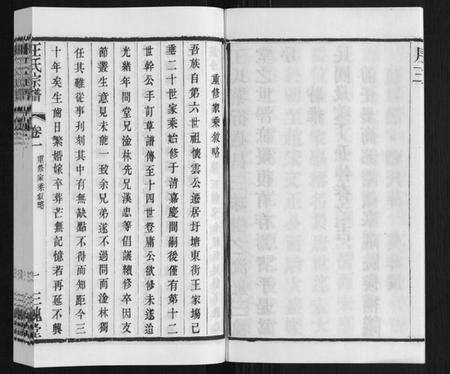 序三
重修家乘敘略
吾族自第六世祖懷雲公遷居圩塘東街王家塲已
垂二十世家乘始修于清嘉慶間嗣後僅有第十二
世幹公手訂草譜傳至十四世聲庸公欲修未遂迨
光緒年間堂兄淦林先兄漢忠等倡議續修卒因支
節叢生意見未能一致余兄弟遂不過問而淦林獨
任其難從事刋刻其中有無缺點不得而知距今三
十年矣生齒日繁婚嫁卒葬茫無記憶若再延不興
汪氏宗譜
卷一
重修家乘敘略
一
三槐堂